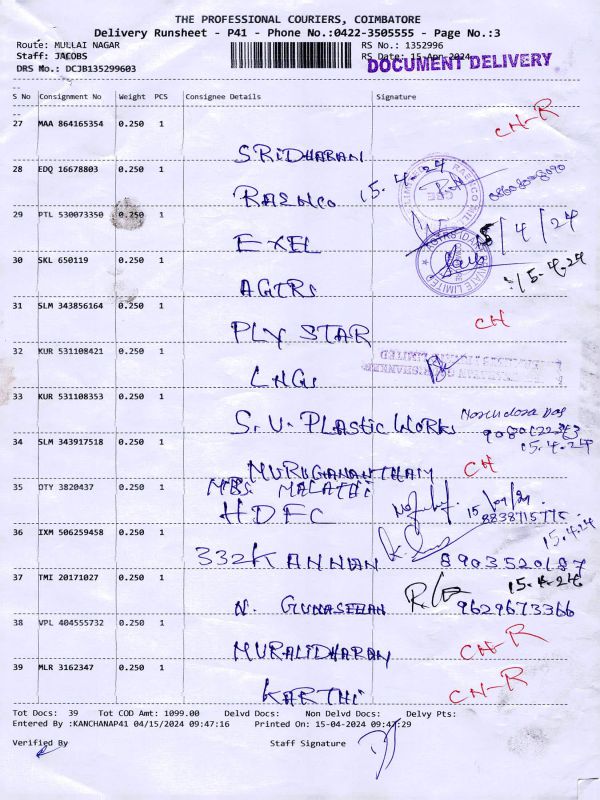 THE PROFESSIONAL COURIERS, COIMBATORE
Delivery Runsheet - P41 - Phone No.:0422-3505555 - Page No.:3
Route: MULLAI NAGAR RS No.: 1352996
Staff: JACOBS RS Date: 15-Apr-2024
DRS No.: DCJB135299603 DOCUMENT DELIVERY
S No Consignment No Weight PCS Consignee Details Signature
27 MAA 864165354 0.250 1 CH-R
SRIDHARAN
28 EDQ 16678803 0.250 1 15.4.24
RAENCO
29 PTL 530073350 0.250 1 15/4/24
EXEL
30 SKL 650119 0.250 1 15.4.24
AGTRS
31 SLM 343856164 0.250 1 CH
PLY STAR
32 KUR 531108421 0.250 1
LNGS
33 KUR 531108353 0.250 1
S.V. PLASTIC WORKS
15.4.24
34 SLM 343917518 0.250 1 CH
MURUGHANANTHAM
MRS. MALATHI
35 DTY 3820437 0.250 1
HDFC 8838715775
36 IXM 506259458 0.250 1 15.4.24
332 KANNAN 8903520187
37 TMI 20171027 0.250 1 15.4.24
N. GUNASEHAN 9629673366
38 VPL 404555732 0.250 1 CH-R
MURALIDHARAN
39 MLR 3162347 0.250 1 CH-R
KARTHI
Tot Docs: 39 Tot COD Amt: 1099.00 Delvd Docs: Non Delvd Docs: Delvy Pts:
Entered By :KANCHANAP41 04/15/2024 09:47:16 Printed On: 15-04-2024 09:47:29
Verified By Staff Signature